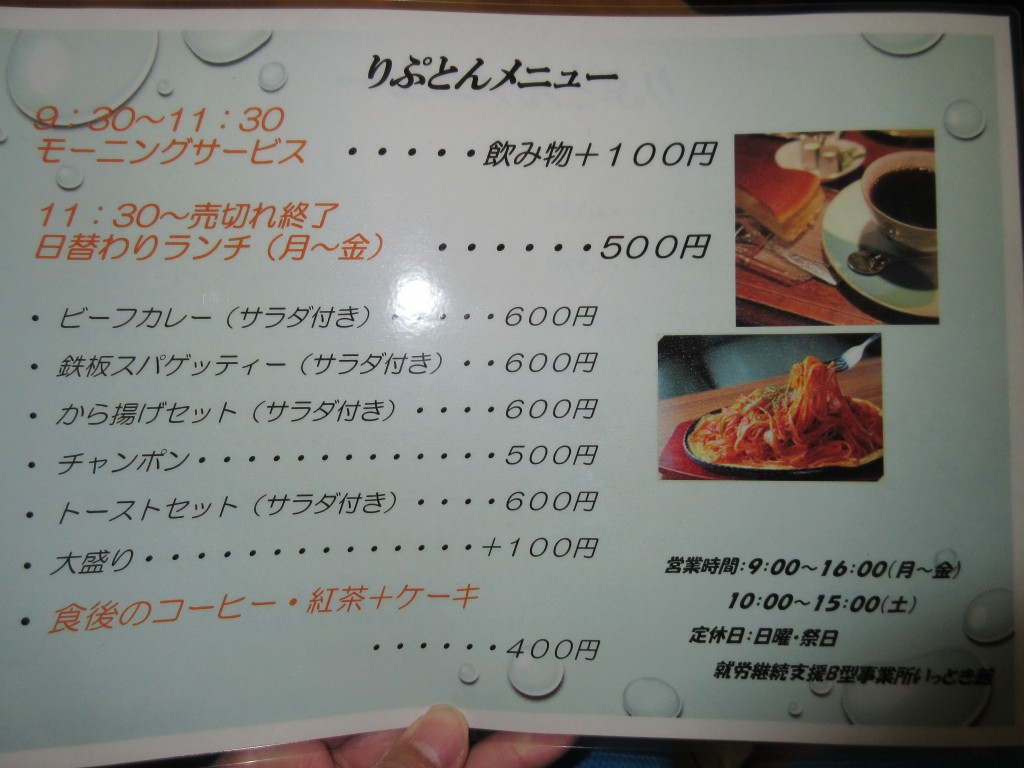 りぷとんメニュー
9：30〜11：30
モーニングサービス ・・・・・飲み物＋100円
11：30〜売切れ終了
日替わりランチ（月〜金） ・・・・・・500円
・ ビーフカレー（サラダ付き）・・・・・600円
・ 鉄板スパゲッティー（サラダ付き）・・600円
・ から揚げセット（サラダ付き）・・・・600円
・ チャンポン・・・・・・・・・・・・・500円
・ トーストセット（サラダ付き）・・・・600円
・ 大盛り・・・・・・・・・・・・・・＋100円
・ 食後のコーヒー・紅茶＋ケーキ
・・・・・・400円
営業時間：9：00〜16：00（月〜金）
10：00〜15：00（土）
定休日：日曜・祭日
就労継続支援B型事業所いっとき館